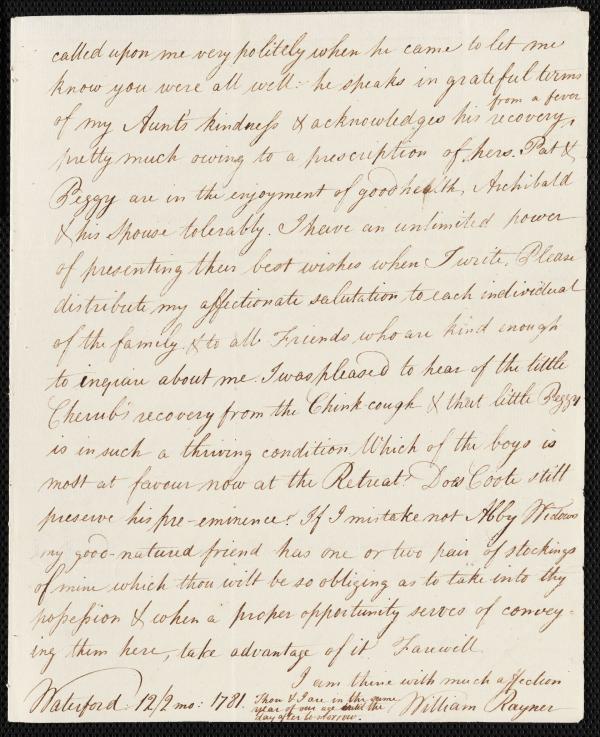 called upon me very politely when he came to let me
know you were all well: he speaks in grateful terms
of my Aunt's kindness & acknowledges his recovery,
from a fever
pretty much owing to a prescription of hers. Pat &
Peggy are in the enjoyment of good health, Archibald
& his Spouse tolerably. I have an unlimited power
of presenting their best wishes when I write. Please
distribute my affectionate salutation to each individual
of the family & to all Friends who are kind enough
to enquire about me. I was pleased to hear of the little
Cherub's recovery from the Chink cough & that little Peggy
is in such a thriving condition. Which of the boys is
most at favour now at the Retreat? Does Coote still
preserve his pre-eminence? If I mistake not Abby Widows
my good-natured friend has one or two pair of stockings
of mine which thou wilt be so obliging as to take into thy
possession & when a proper opportunity serves of convey-
ing them here, take advantage of it Farewell
I am thine with much affection
Waterford: 12/2 mo: 1781.
Thou & I are in the same
year of our age until the
day after to morrow.
William Rayner